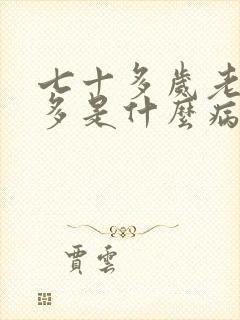 七十多歲老
多是什麼病
賈雲